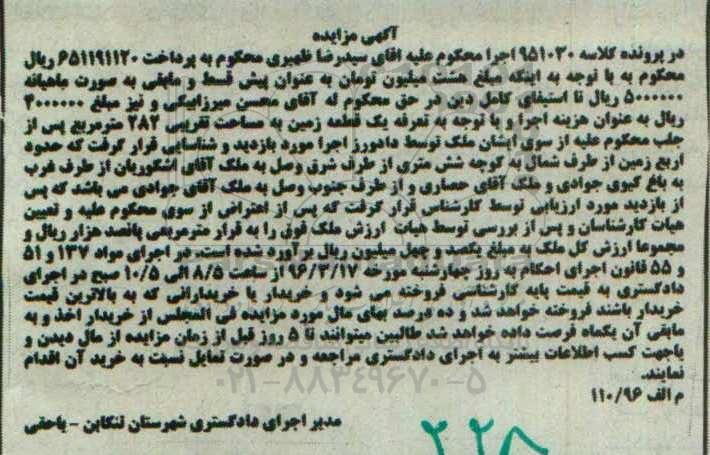 آگهی مزایده
در پرونده کلاسه ۹۵۱۰۳۰ اجرا محکوم علیه اقای سیدرضا ظهیری محکوم به پرداخت ۶۵۱۱۹۱۱۲۰ ریال
محکوم به با توجه به اینکه مبلغ هشت میلیون تومان به عنوان پیش قسط و مابقی به صورت ماهیانه
۵۰۰۰۰۰۰ ریال تا استیفای کامل دین در حق محکوم له آقای محسن میرزابیگی و نیز مبلغ ۴۰۰۰۰۰۰
ریال به عنوان هزینه اجرا و با توجه به تعرفه یک قطعه زمین به مساحت تقریبی ۲۸۲ مترمربع پس از
جلب محکوم علیه از سوی ایشان ملک توسط دادورز اجرا مورد بازدید و شناسایی قرار گرفت که حدود
اربع زمین از طرف شمال به کوچه شش متری از طرف شرق وصل به ملک آقای اشکوریان از طرف غرب
به باغ کیوی جوادی و ملک آقای حصاری و از طرف جنوب وصل به ملک آقای جوادی می باشد که پس
از بازدید مورد ارزیابی توسط کارشناس قرار گرفت که پس از اعتراض از سوی محکوم علیه و تعیین
هیات کارشناسان و پس از بررسی توسط هیات ارزش ملک فوق را به قرار مترمربعی پانصد هزار ریال و
مجموعا ارزش کل ملک به مبلغ یکصد و چهل میلیون ریال برآورد شده است. در اجرای مواد ۱۳۷ و ۵۱
و ۵۵ قانون اجرای احکام به روز چهارشنبه مورخه ۹۶/۳/۱۷ از ساعت ۸/۵ الی ۱۰/۵ صبح در اجرای
دادگستری به قیمت پایه کارشناسی فروخته می شود و خریدار یا خریدارانی که به بالاترین قیمت
خریدار باشند فروخته خواهد شد و ده درصد بهای مال مورد مزایده فی المجلس از خریدار اخذ و به
مابقی آن یکماه فرصت داده خواهد شد طالبین میتوانند تا ۵ روز قبل از زمان مزایده از مال دیدن و
یاجهت کسب اطلاعات بیشتر به اجرای دادگستری مراجعه و در صورت تمایل نسبت به خرید آن اقدام
نمایند.
۰۲۱-۸۸۳۴۹۶۷۰-۵
م الف ۱۱۰/۹۶
مدیر اجرای دادگستری شهرستان تنکابن - یاحقی
۲۲۵